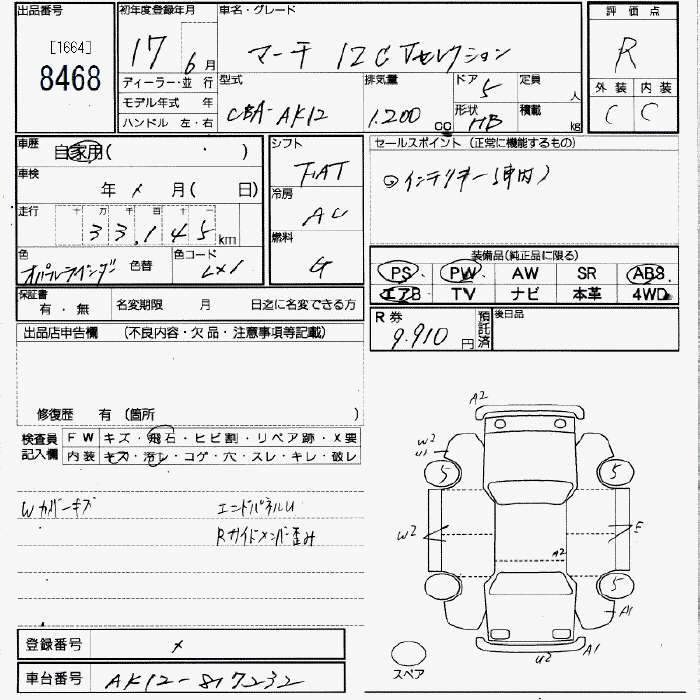 出品番号 初年度登録年月 車名・グレード 評価点
[1664]
8468
17 6月 マーチ 12C Vセレクション R
ディーラー・並行 型式 排気量 ドア 定員 外装 内装
モデル年式 年 CBA-AK12 1.200 cc 5 人 C C
ハンドル 左・右 形状 HB 積載 kg
車歴 自家用( ・ ) シフト FAT セールスポイント (正常に機能するもの)
車検 年 × 月( 日) インテリキー(車内)
冷房 AC
走行 十万千百十一 33,145km
燃料 G
色 オパールラベンダー 色替 色コード LX1
装備品(純正品に限る)
PS PW AW SR ABS
エアB TV ナビ 本革 4WD
保証書 有・無 名変期限 月 日迄に名変できる方
R券 9.910円 預託済 後日品
出品店申告欄 (不良内容・欠品・注意事項等記載)
修復歴 有 (箇所 )
検査員記入欄 FW キズ・飛石・ヒビ割・リペア跡・X要
内装 キズ・汚レ・コゲ・穴・スレ・キレ・破レ
Wカバーキズ エンドパネルU
Rサイドメンバー歪み
A2
W2
U1
5 5
W2 E
A2
5
A1
U2 A1
スペア
登録番号 ×
車台番号 AK12-817232